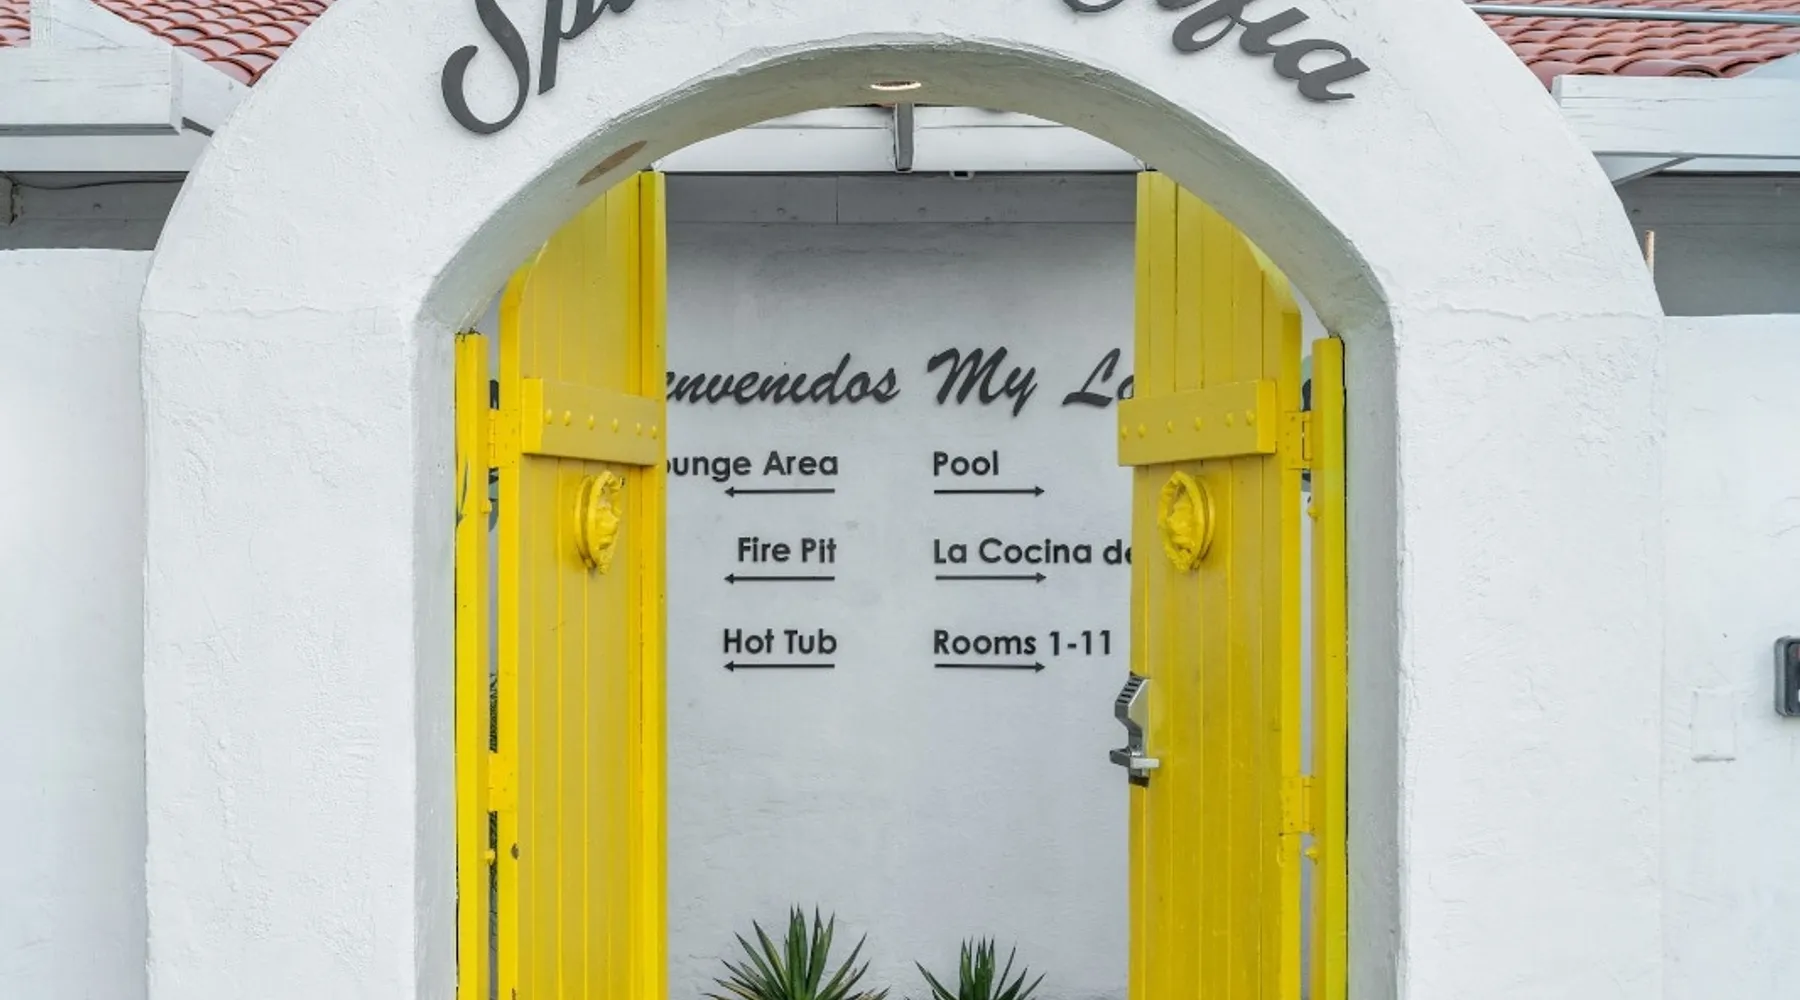 envenidos My Lo
ounge Area
Pool
Fire Pit
La Cocina de
Hot Tub
Rooms 1-11